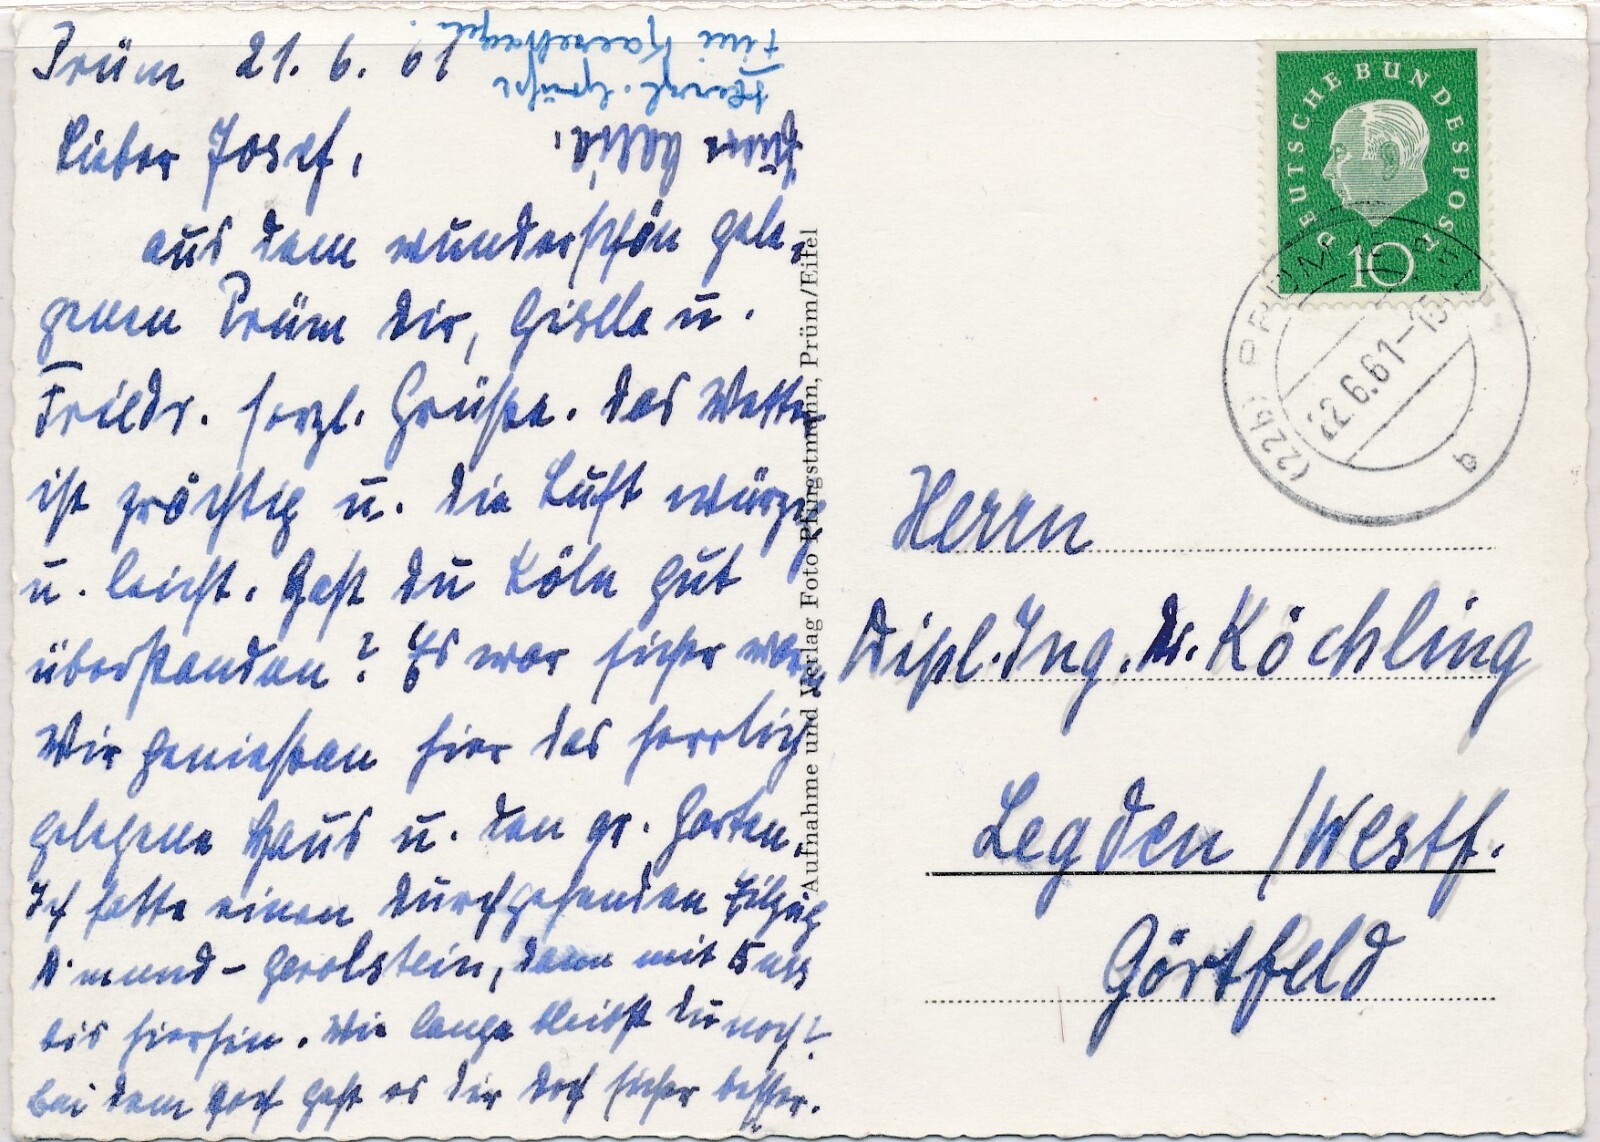 Prüm 21.6.61
Lieber Josef,
aus dem wunderschön gele-
genen Prüm dir, Gisela u.
Friedr. herzl. Grüße. Das Wetter
ist prächtig u. die Luft würzig
u. leicht. Hast du Köln gut
überstanden? Es war sicher warm
Wir genießen hier das herrlich
gelegene Haus u. den gr. Garten.
Ich hatte einen durchgehenden Eilzug
D.mund-Gerolstein, dann mit Bus
bis hierhin. Wie lange bleibst du noch?
Bei dem Hoch geht es dir doch sicher besser.
Herzl. Grüße
Aufnahme und Verlag Foto Pfingstmann, Prüm/Eifel
DEUTSCHE BUNDESPOST
10
(22b) PRÜM
22.6.61-15
a
Herrn
Dipl.Ing. Dr. Köchling
Legden /Westf.
Görtfeld